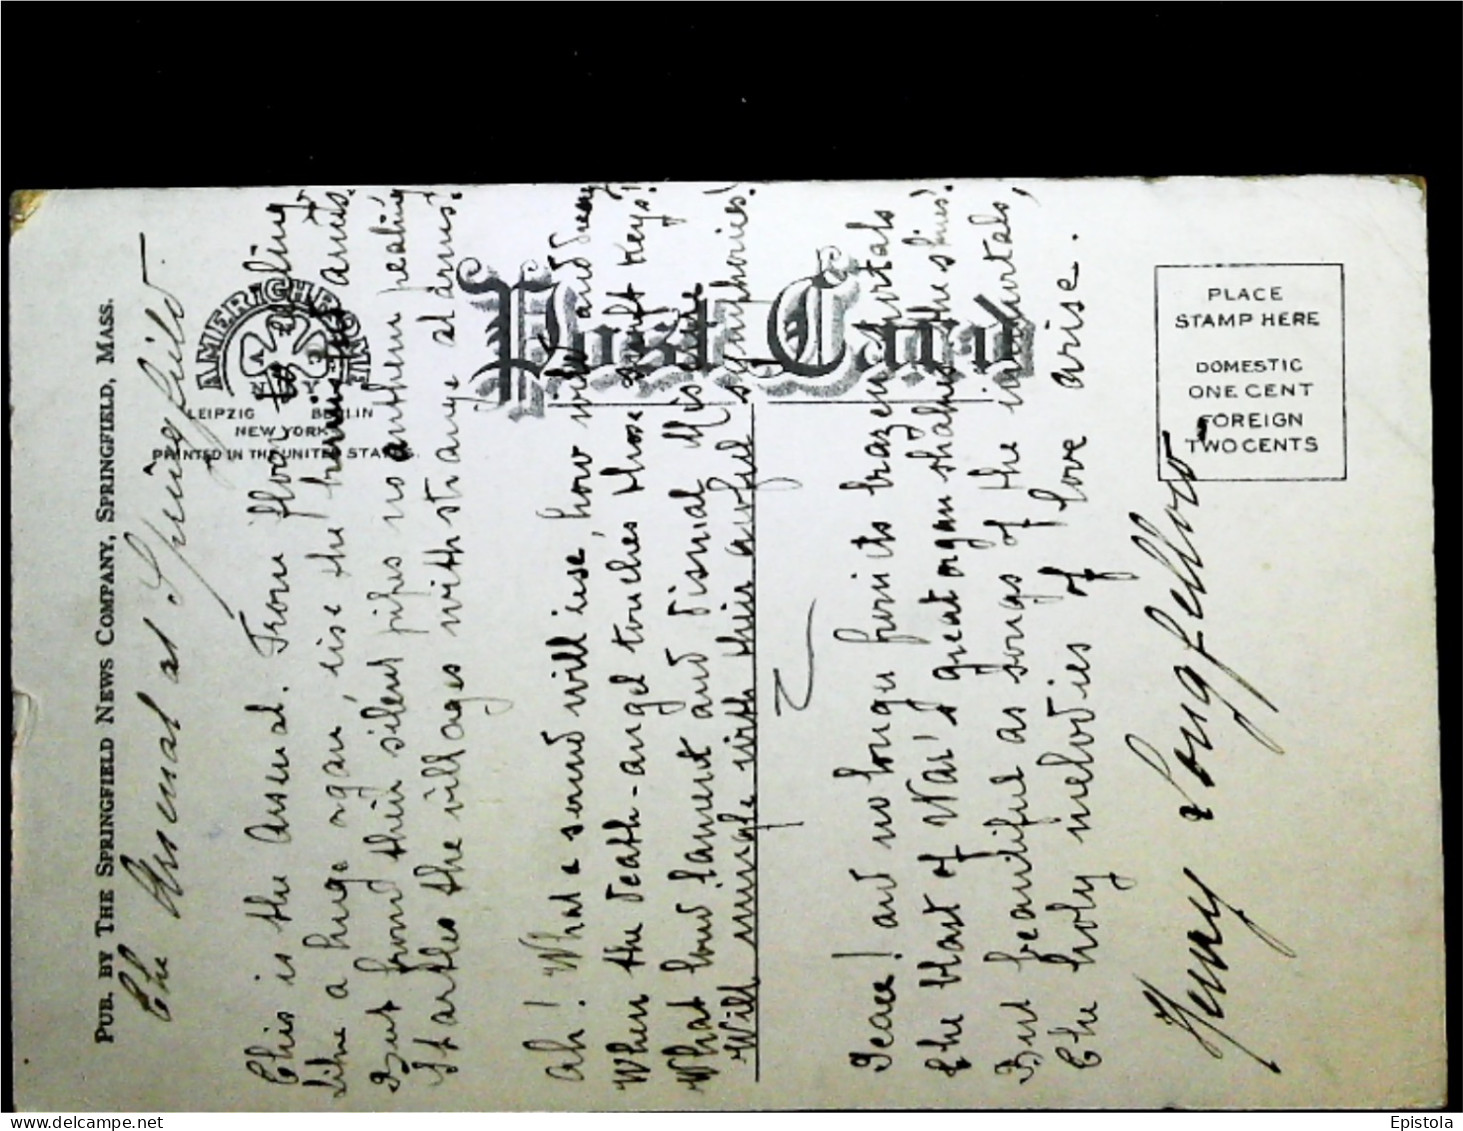 PUB. BY THE SPRINGFIELD NEWS COMPANY, SPRINGFIELD, MASS.
AMERICHROME
A C
N Y
LEIPZIG BERLIN
NEW YORK
PRINTED IN THE UNITED STATES.
Post Card
PLACE
STAMP HERE
DOMESTIC
ONE CENT
FOREIGN
TWO CENTS
The Arsenal at Springfield.
This is the Arsenal. From floor to ceiling,
Like a huge organ, rise the burnished arms.
But from their silent pipes no anthem pealing
Startles the villages with strange alarms.
Ah! What a sound will rise, how wild and dreary
When the death-angel touches those swift keys!
What loud lament and dismal Miserere
Will mingle with their awful symphonies!
Peace! and no longer from its brazen portals
The blast of War's great organ shakes the skies!
But beautiful as songs of the immortals,
The holy melodies of love arise.
Henry Longfellow.
Epistola